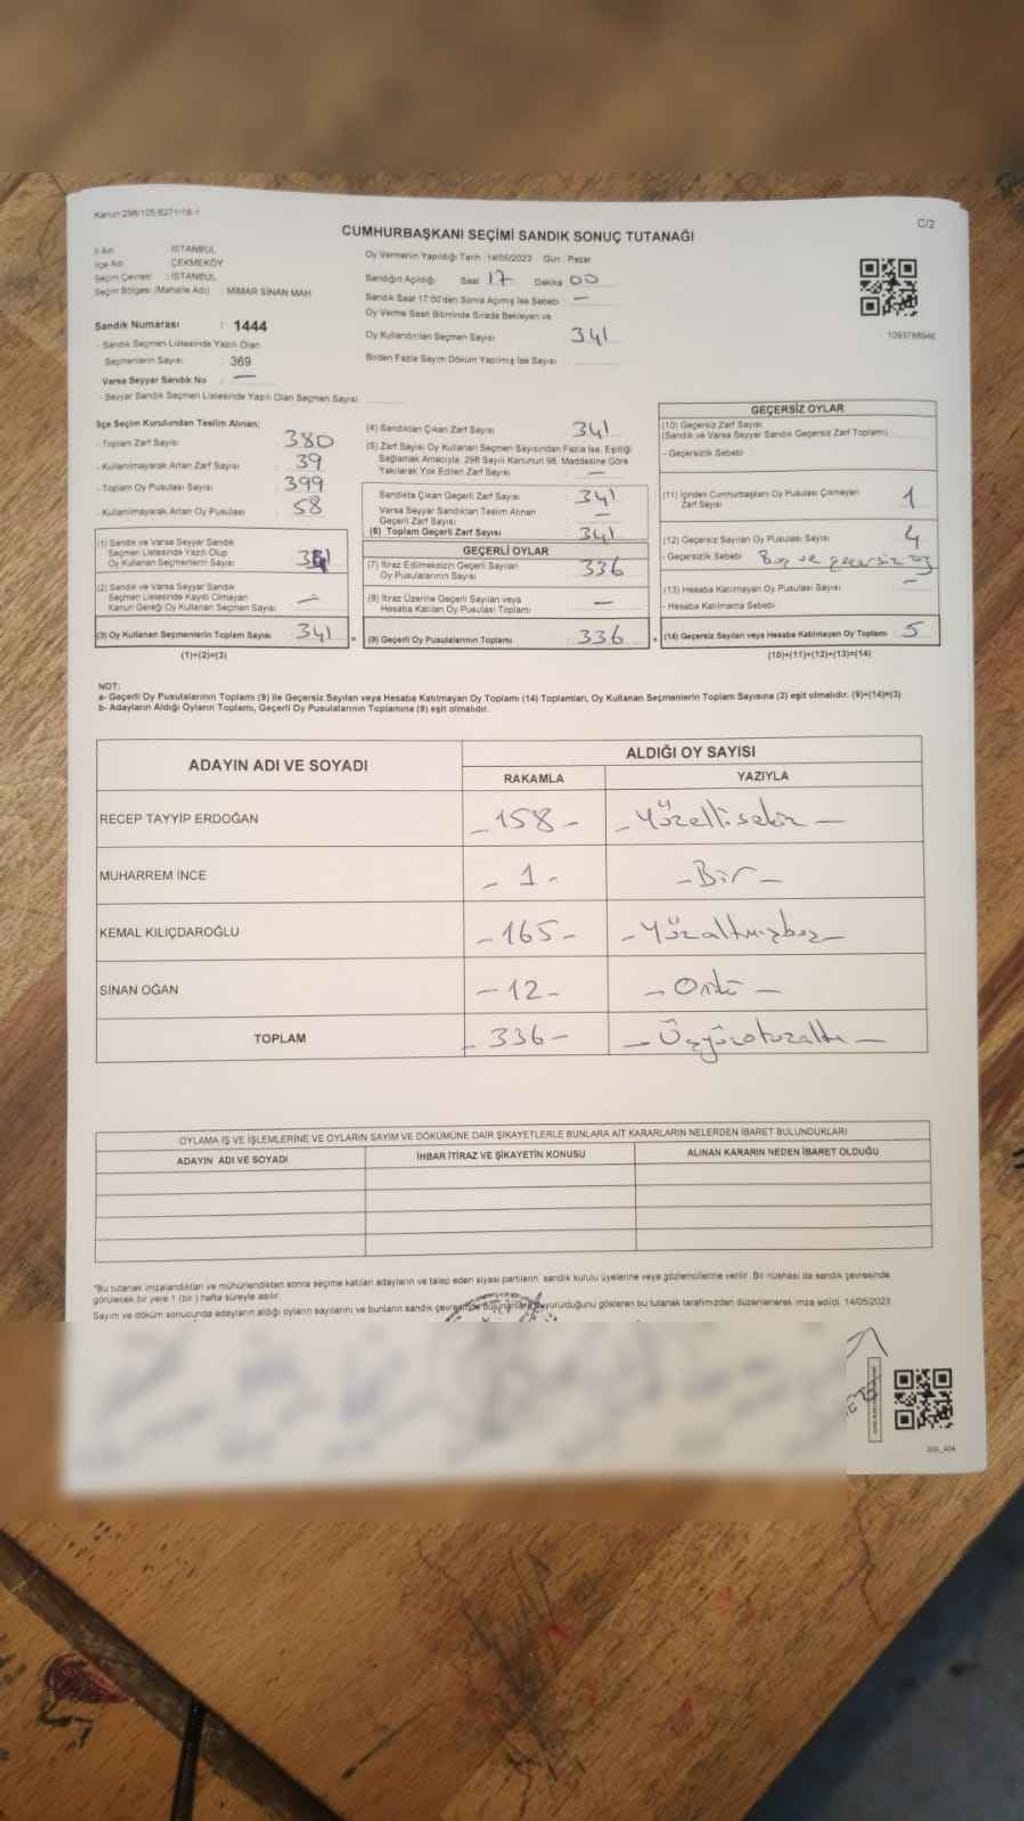 Kanun:298/105-6271/18-1
C/2
CUMHURBAŞKANI SEÇİMİ SANDIK SONUÇ TUTANAĞI
İl Adı : İSTANBUL
İlçe Adı : ÇEKMEKÖY
Seçim Çevresi : İSTANBUL
Seçim Bölgesi (Mahalle Adı) MİMAR SİNAN MAH
Sandık Numarası : 1444
- Sandık Seçmen Listesinde Yazılı Olan
Seçmenlerin Sayısı : 369
Varsa Seyyar Sandık No : —
- Seyyar Sandık Seçmen Listesinde Yazılı Olan Seçmen Sayısı
Oy Vermenin Yapıldığı Tarih :14/05/2023 Gün : Pazar
Sandığın Açılışı Saat 17 Dakika 00
Sandık Saat 17:00'den Sonra Açılmış İse Sebebi —
Oy Verme Saati Bitiminde Sırada Bekleyen ve
Oy Kullandırılan Seçmen Sayısı 341
Birden Fazla Sayım Döküm Yapılmış İse Sayısı
İlçe Seçim Kurulundan Teslim Alınan;
- Toplam Zarf Sayısı 380
- Kullanılmayarak Artan Zarf Sayısı 39
- Toplam Oy Pusulası Sayısı 399
- Kullanılmayarak Artan Oy Pusulası 58
(1) Sandık ve Varsa Seyyar Sandık
Seçmen Listesinde Yazılı Olup
Oy Kullanan Seçmenlerin Sayısı 341
(2) Sandık ve Varsa Seyyar Sandık
Seçmen Listesinde Kayıtlı Olmayan
Kanun Gereği Oy Kullanan Seçmen Sayısı —
(3) Oy Kullanan Seçmenlerin Toplam Sayısı 341 =
(1)+(2)=(3)
(4) Sandıktan Çıkan Zarf Sayısı 341
(5) Zarf Sayısı Oy Kullanan Seçmen Sayısından Fazla İse, Eşitliği
Sağlamak Amacıyla, 298 Sayılı Kanunun 98. Maddesine Göre
Yakılarak Yok Edilen Zarf Sayısı —
Sandıkta Çıkan Geçerli Zarf Sayısı 341
Varsa Seyyar Sandıktan Teslim Alınan
Geçerli Zarf Sayısı —
(6) Toplam Geçerli Zarf Sayısı 341
GEÇERLİ OYLAR
(7) İtiraz Edilmeksizin Geçerli Sayılan
Oy Pusulalarının Sayısı 336
(8) İtiraz Üzerine Geçerli Sayılan veya
Hesaba Katılan Oy Pusulası Toplamı —
(9) Geçerli Oy Pusulalarının Toplamı 336 +
GEÇERSİZ OYLAR
(10) Geçersiz Zarf Sayısı
(Sandık ve Varsa Seyyar Sandık Geçersiz Zarf Toplamı)
- Geçersizlik Sebebi
(11) İçinden Cumhurbaşkanı Oy Pusulası Çıkmayan
Zarf Sayısı 1
(12) Geçersiz Sayılan Oy Pusulası Sayısı 4
- Geçersizlik Sebebi Boş ve geçersiz oy
(13) Hesaba Katılmayan Oy Pusulası Sayısı —
- Hesaba Katılmama Sebebi
(14) Geçersiz Sayılan veya Hesaba Katılmayan Oy Toplamı 5
(10)+(11)+(12)+(13)=(14)
NOT:
a- Geçerli Oy Pusulalarının Toplamı (9) ile Geçersiz Sayılan veya Hesaba Katılmayan Oy Toplamı (14) Toplamları, Oy Kullanan Seçmenlerin Toplam Sayısına (3) eşit olmalıdır. (9)+(14)=(3)
b- Adayların Aldığı Oyların Toplamı, Geçerli Oy Pusulalarının Toplamına (9) eşit olmalıdır.
ADAYIN ADI VE SOYADI
ALDIĞI OY SAYISI
RAKAMLA YAZIYLA
RECEP TAYYİP ERDOĞAN - 158 - - Yüzellisekiz -
MUHARREM İNCE - 1 - - Bir -
KEMAL KILIÇDAROĞLU - 165 - - Yüzaltmışbeş -
SİNAN OĞAN - 12 - - Oniki -
TOPLAM - 336 - - Üçyüzotuzaltı -
OYLAMA İŞ VE İŞLEMLERİNE VE OYLARIN SAYIM VE DÖKÜMÜNE DAİR ŞİKAYETLERLE BUNLARA AİT KARARLARIN NELERDEN İBARET BULUNDUKLARI
ADAYIN ADI VE SOYADI
İHBAR İTİRAZ VE ŞİKAYETİN KONUSU
ALINAN KARARIN NEDEN İBARET OLDUĞU
*Bu tutanak imzalandıktan ve mühürlendikten sonra seçime katılan adayların ve talep eden siyasi partilerin sandık kurulu üyelerine veya gözlemcilerine verilir. Bir nüshası da sandık çevresinde
görülecek bir yere 1 (bir ) hafta süreyle asılır.
Sayım ve döküm sonucunda adayların aldığı oyların sayılarını ve bunların sandık çevresinde duyurulduğunu gösteren bu tutanak tarafımızdan düzenlenerek imza edildi. 14/05/2023